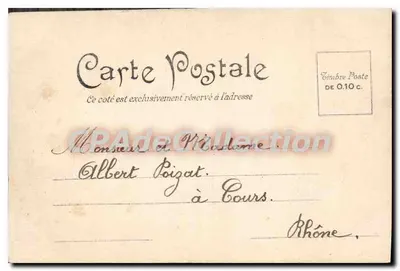 Carte Postale
Ce coté est exclusivement réservé à l'adresse
Timbre Poste
DE 0.10 c.
CPAdeCollection
Monsieur et Madame
Albert Poizat.
à Cours.
Rhône.